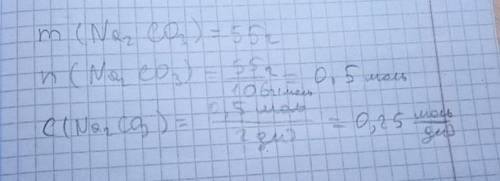 m (Na₂CO₃) = 55г
n (Na₂CO₃) = 55г / 106г/моль = 0,5 моль
C (Na₂CO₃) = 0,5 моль / 2 дм³ = 0,25 моль/дм³